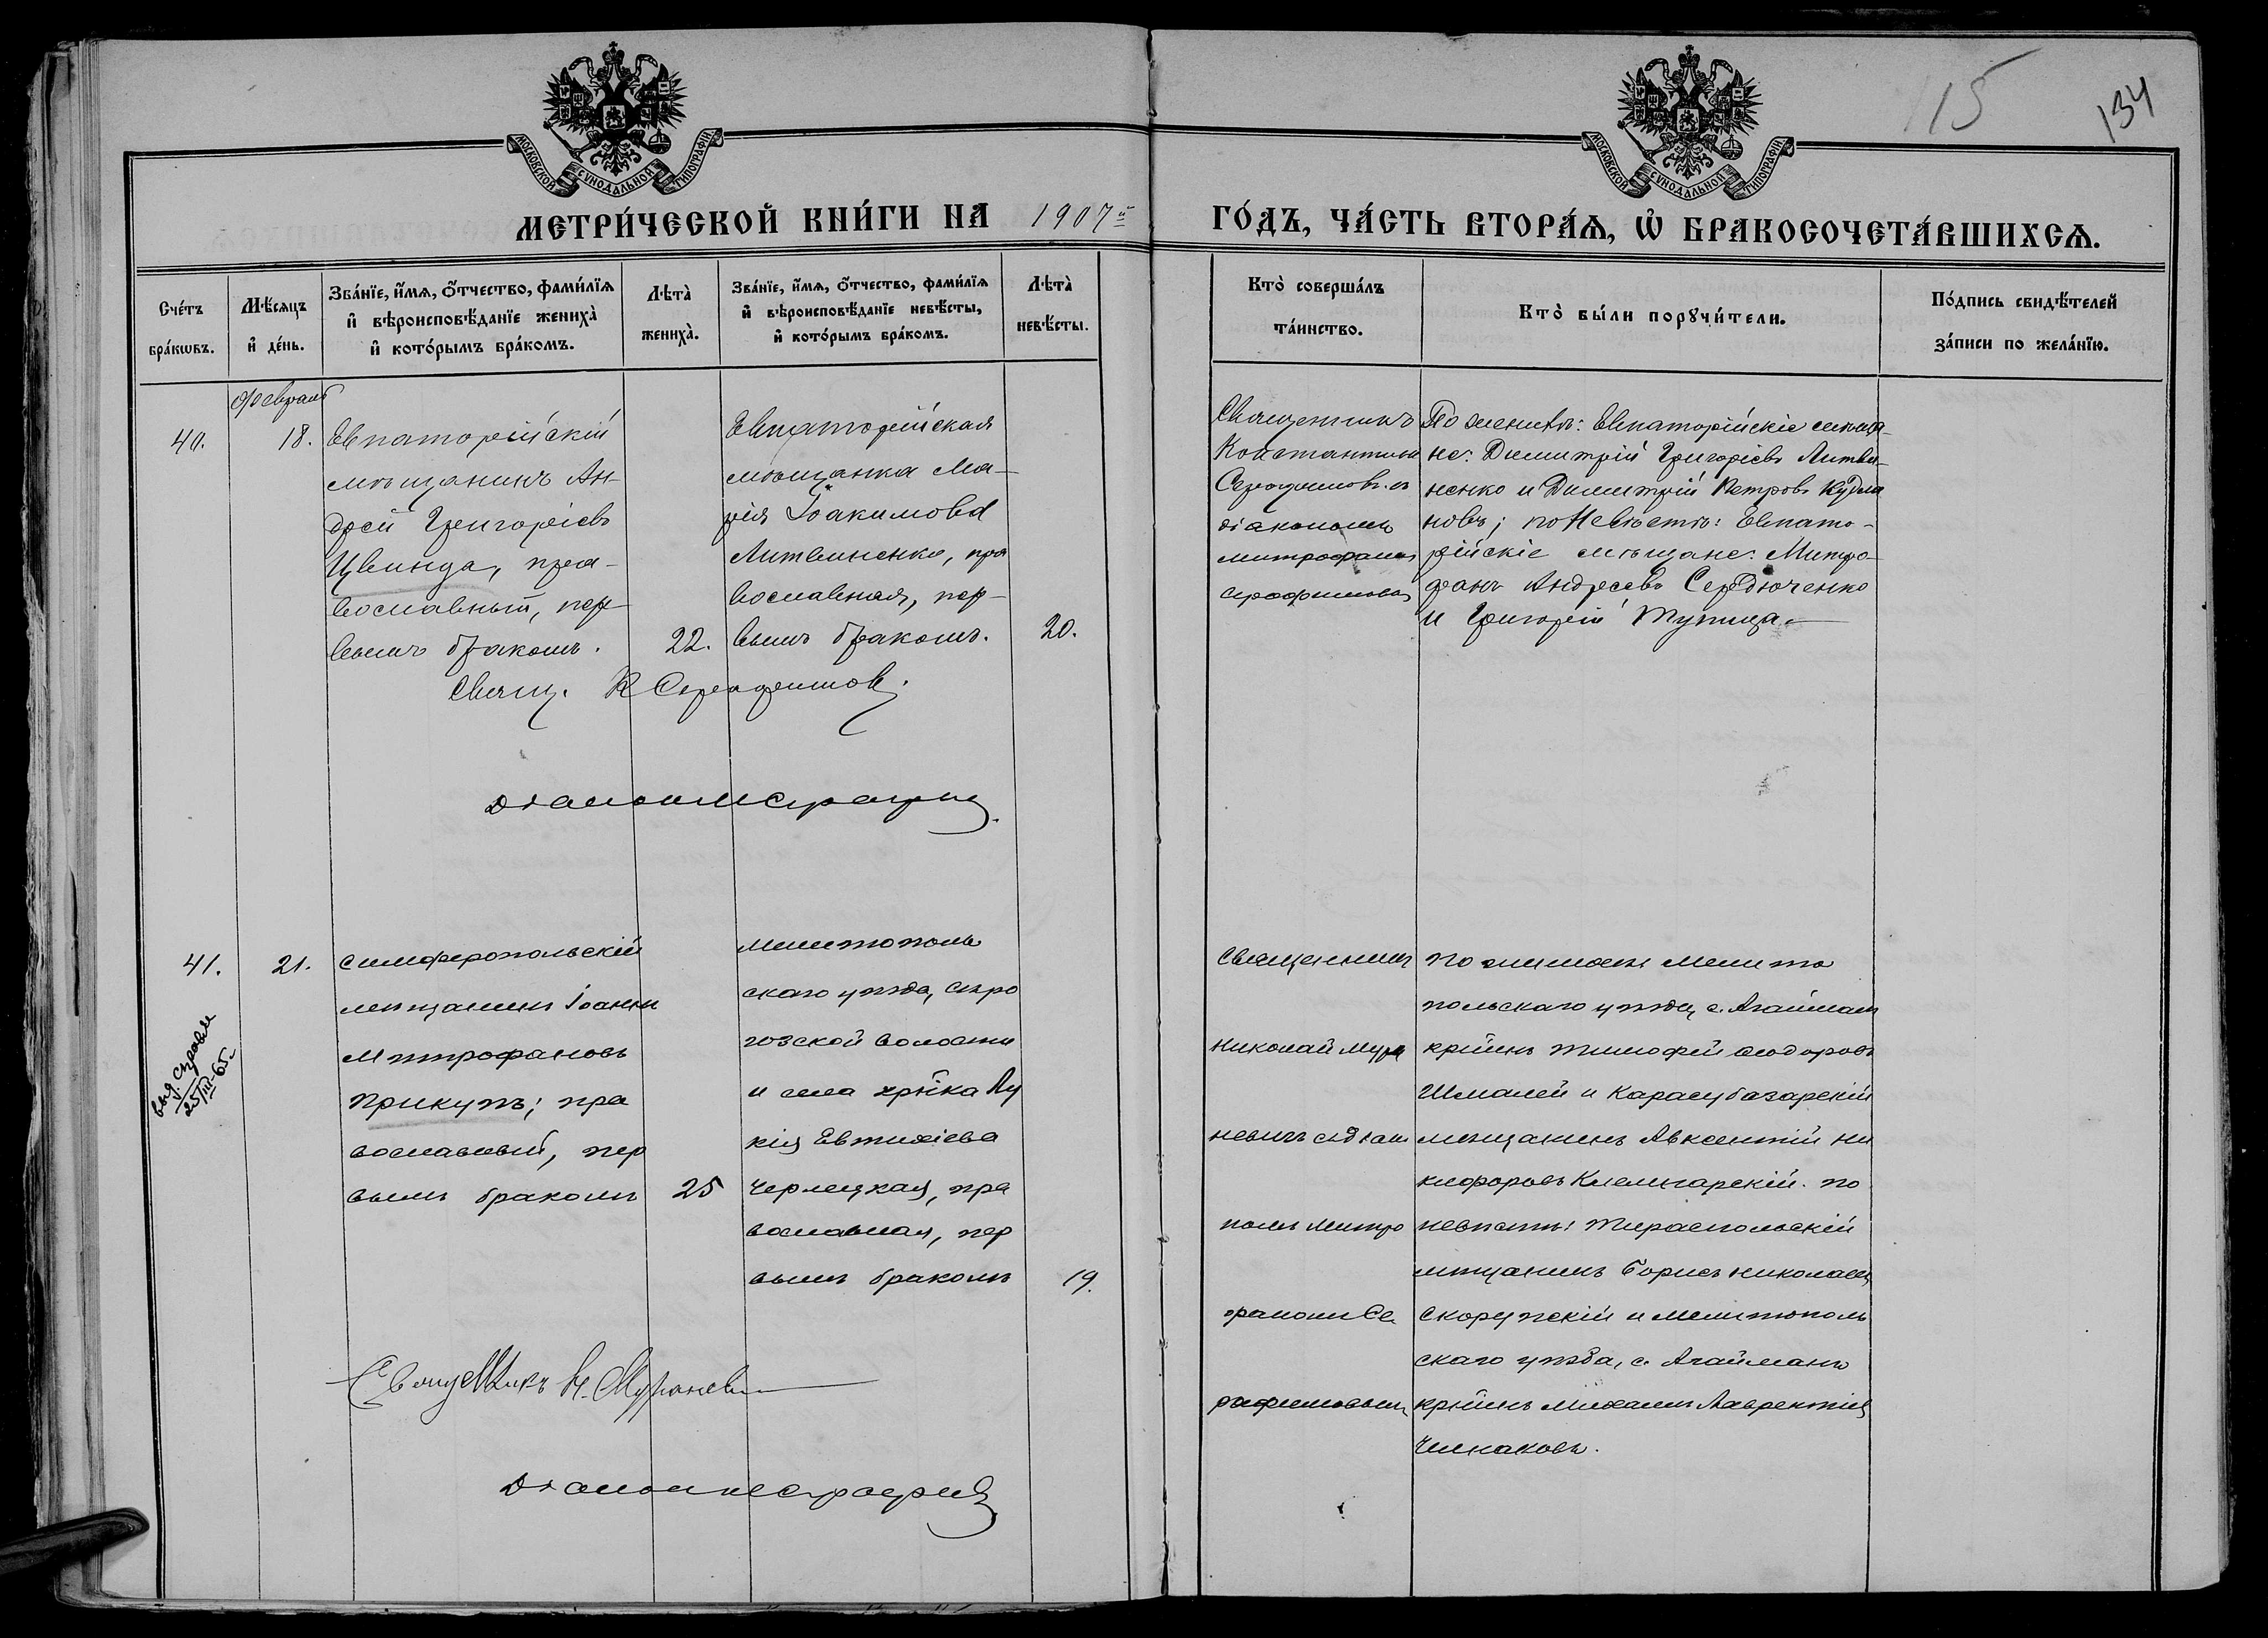 115
134
МОСКОВСКОЙ СѴНОДАЛЬНОЙ ТИПОГРАФІИ
МОСКОВСКОЙ СѴНОДАЛЬНОЙ ТИПОГРАФІИ
МЕТРИ́ЧЕСКОЙ КНИ́ГИ НА 1907й ГО́ДЪ, ЧА́СТЬ ВТОРА́Ѧ, Ѡ БРАКОСОЧЕТА́ВШИХСѦ.
Сче́тъ
бра́кѡвъ.
Мѣ́сяцъ
и де́нь.
Зва́нїе, и́мѧ, о́тчество, фами́лїѧ
и вѣроисповѣ́данїе жениха̀
и кото́рымъ бра́комъ.
Лѣта̀
жениха̀.
Зва́нїе, и́мѧ, о́тчество, фами́лїѧ
и вѣроисповѣ́данїе невѣ́сты,
и кото́рымъ бра́комъ.
Лѣта̀
невѣ́сты.
Кто̀ соверша́лъ
та́инство.
Кто̀ бы́ли порꙋчи́тели.
По́дпись свидѣ́телей
за́писи по жела́нїю.
Февраль
40.
18.
Евпаторійскій
мѣщанинъ Ан-
дрей Григоріевъ
Цвинда, пра-
вославный, пер-
вымъ бракомъ.
22.
Евпаторійская
мѣщанка Ма-
рія Іоакимова
Литвиненко, пра
вославная, пер-
вымъ бракомъ.
20.
Священникъ
Константинъ
Серафимовъ съ
діакономъ
Митрофаномъ
Серафимовымъ
По женихѣ: Евпаторійскіе мѣща-
не: Димитрій Григоріевъ Литви-
ненко и Димитрій Петровъ Кудла
новъ; по Невѣстѣ: Евпато-
рійскіе мѣщане: Митро-
фанъ Андреевъ Сердюченко
и Григорій Тупица.
Свящ. К Серафимовъ.
Діаконъ М Серафим
41.
21.
Симферопольскій
мѣщанинъ Іоаннъ
Митрофановъ
Прикупъ; пра
вославный, пер
вымъ бракомъ
25
Мелитополь
скаго уѣзда, Сѣро
гозской волости
и села кр-ка Лу
кія Евтихіева
Чермецкая, пра
вославная, пер
вымъ бракомъ
19.
выд. справки
25/III-65
Священникъ
Николай Мура
невичъ съ діак
номъ Митро
фаномъ Се
рафимовымъ
По женихѣ Мелито
польскаго уѣзда, с. Агайманъ
кр-нинъ Тимофей Ѳеодоровъ
Шмалей и Карасубазарскій
мѣщанинъ Авксентій Ни
кифоровъ Клемпарскій. По
невѣстѣ: Тираспольскій
мѣщанинъ Борисъ Николаевъ
Скорупскій и Мелитополь
скаго уѣзда, с. Агайманъ
кр-нинъ Михаилъ Лаврентіев
Чепкаковъ.
Священникъ Н. Мураневич
Діаконъ М Серафим